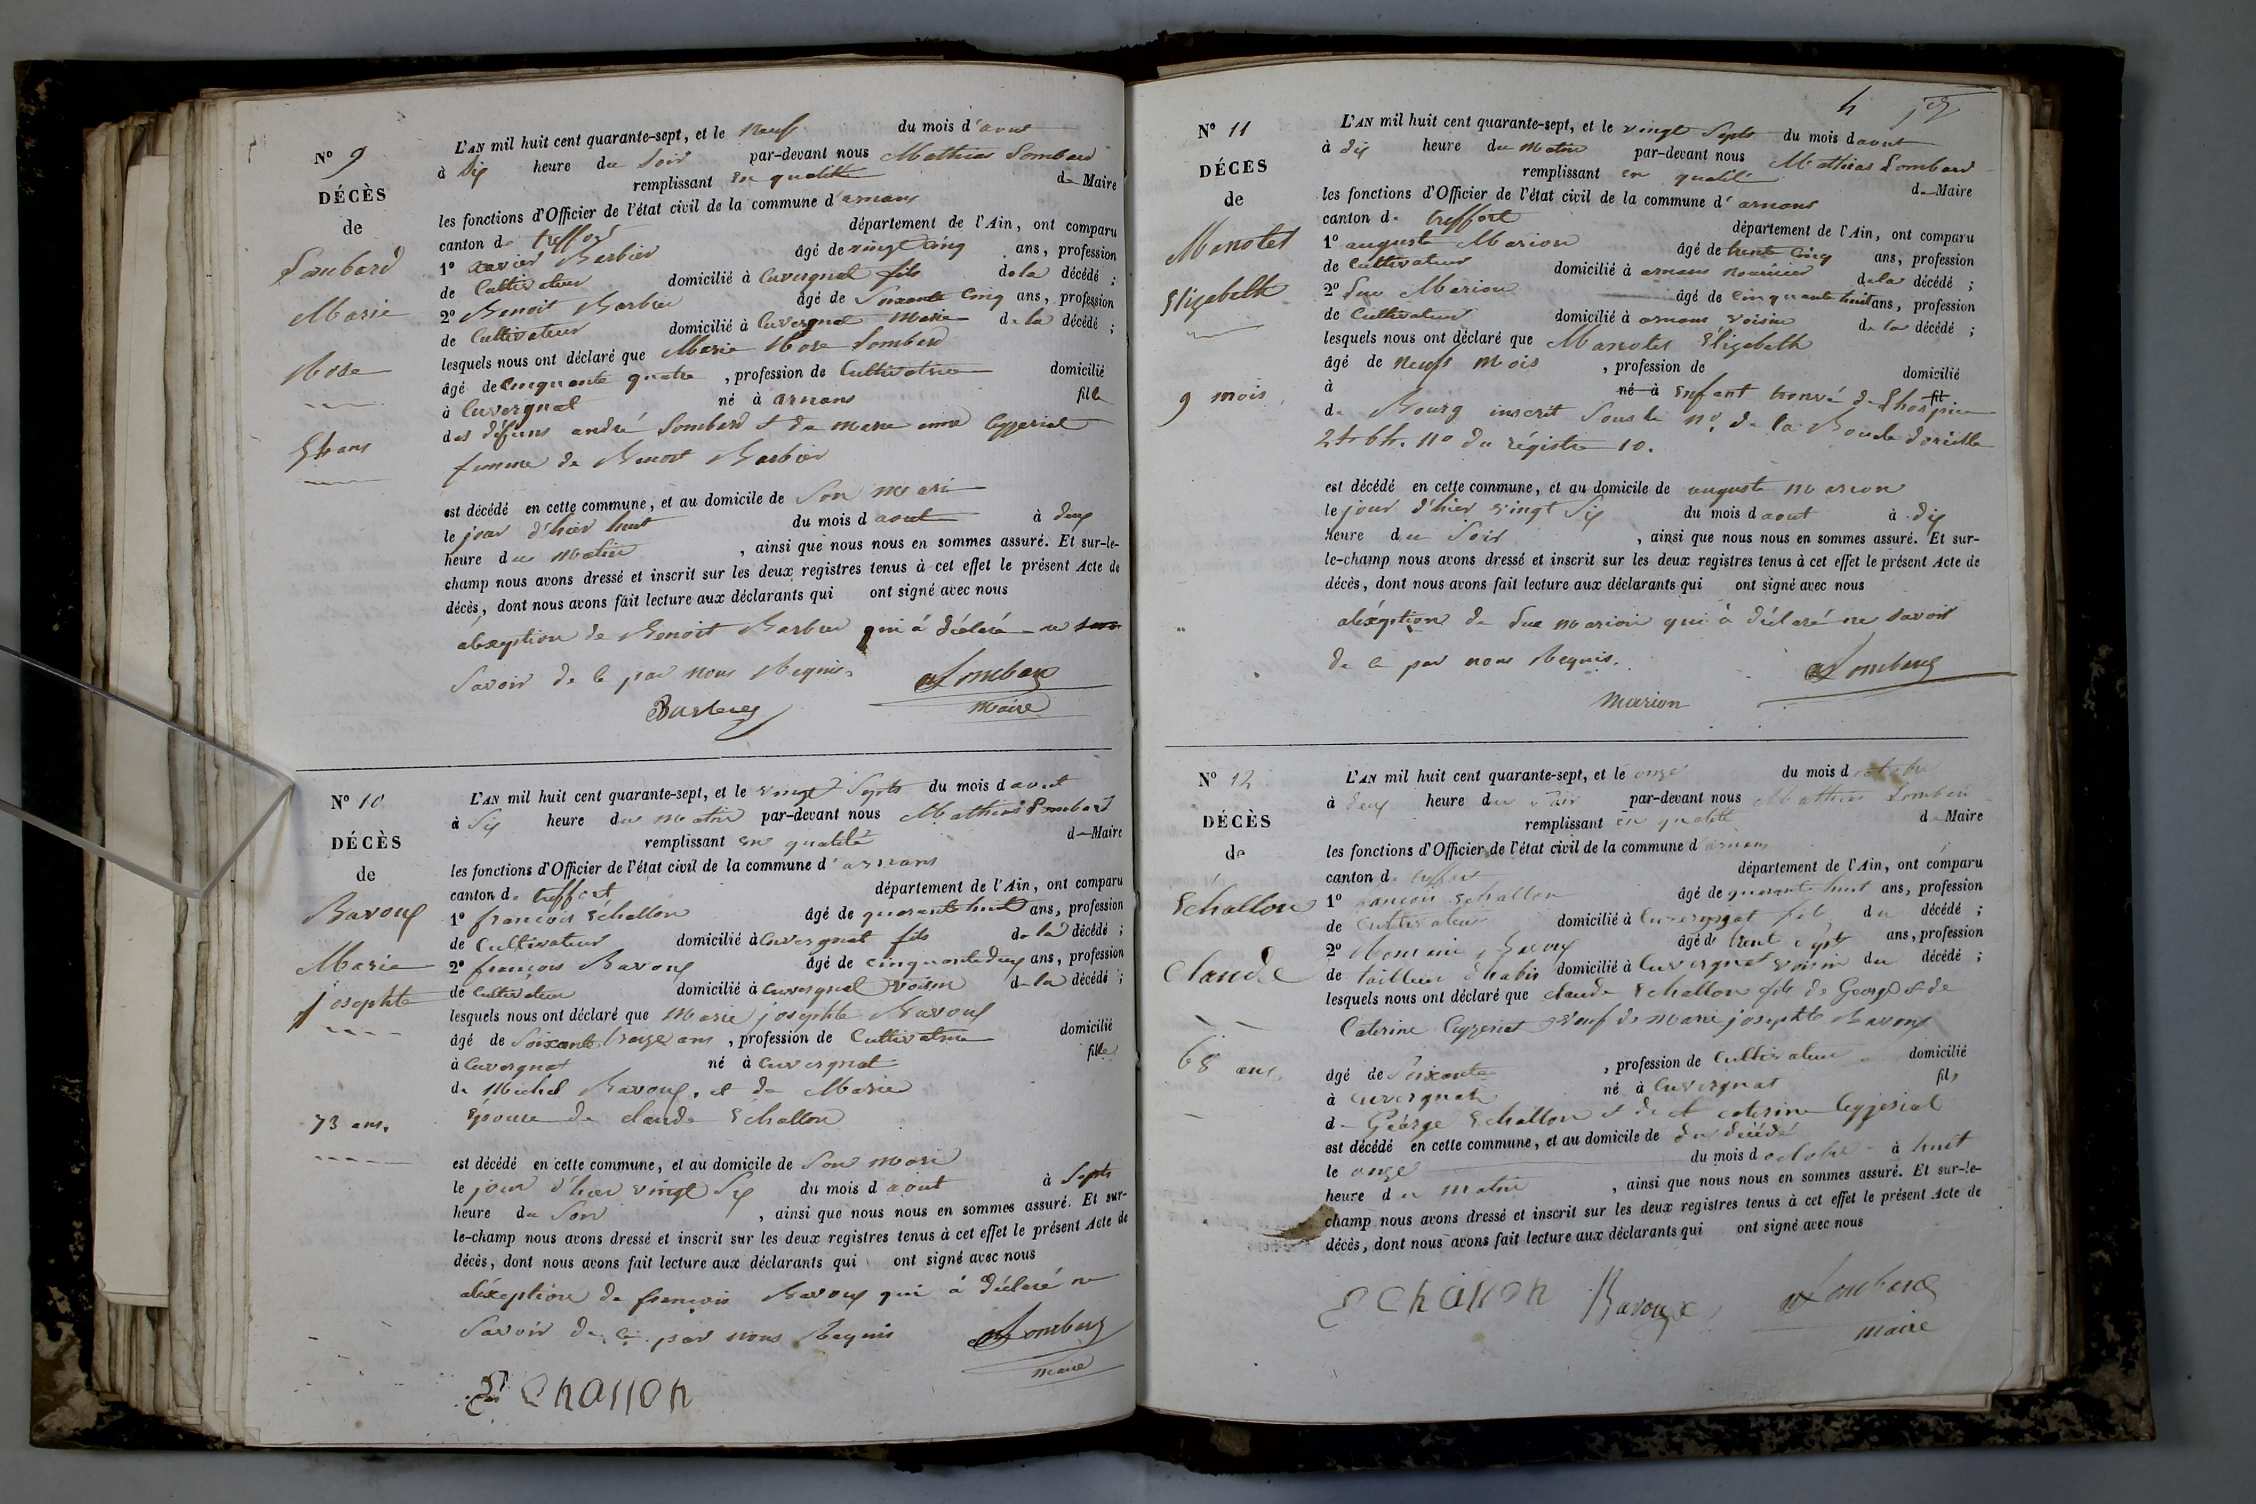 N° 9
DÉCÈS
de
Lombard
Marie
Rose
54 ans
L'AN mil huit cent quarante-sept, et le neuf du mois d'aout
à dix heure du soir par-devant nous Mathias Lombard
remplissant en qualité de Maire
les fonctions d'Officier de l'état civil de la commune d'arnans
canton de treffort département de l'Ain, ont comparu
1° xavier Barbier âgé de vingt cinq ans, profession
de Cultivateur domicilié à Cuvergnat fils de la décédé ;
2° Benoit Barbier âgé de Soixante Cinq ans, profession
de Cultivateur domicilié à Cuvergnat Marie de la décédé ;
lesquels nous ont déclaré que Marie Rose Lombard
âgé de Cinquante quatre , profession de Cultivatrice domicilié
à Cuvergnat né à arnans fille
des défuns andré Lombard et de marie anne Ceyzeriat
femme de Benoit Barbier
est décédé en cette commune, et au domicile de Son mari
le jour d'hier huit du mois d aout à deux
heure du matin , ainsi que nous nous en sommes assuré. Et sur-le-
champ nous avons dressé et inscrit sur les deux registres tenus à cet effet le présent Acte de
décès, dont nous avons fait lecture aux déclarants qui ont signé avec nous
aléxeption de Benoit Barbier qui à déclaré ne
Savoir de ce par nous Requis.
Lombard
maire
N° 10
DÉCÈS
de
Bavoux
Marie
josephte
73 ans.
L'AN mil huit cent quarante-sept, et le vingt Septs du mois d aout
à Six heure du matin par-devant nous Mathias Lombard
remplissant en qualité de Maire
les fonctions d'Officier de l'état civil de la commune d'arnans
canton de treffort département de l'Ain, ont comparu
1° francois Echallon âgé de quarante huit ans, profession
de Cultivateur domicilié à Cuvergnat fils de la décédé ;
2° françois Bavoux âgé de cinquante deux ans, profession
de Cultivateur domicilié à Cuvergnat voisin de la décédé ;
lesquels nous ont déclaré que Marie josephte Bavoux
âgé de Soixante treize ans , profession de Cultivatrice domicilié
à Cuvergnat né à Cuvergnat fille
de Michel Bavoux, et de Marie
épouse de claude Echallon
est décédé en cette commune, et au domicile de Son mari
le jour d'hier vingt Six du mois d aout à Septs
heure du Soir , ainsi que nous nous en sommes assuré. Et sur-
le-champ nous avons dressé et inscrit sur les deux registres tenus à cet effet le présent Acte de
décès, dont nous avons fait lecture aux déclarants qui ont signé avec nous
aléxeption de françois Bavoux qui à déclaré ne
Savoir de ce par nous Requis
Lombard
maire
Echallon
N° 11
DÉCÈS
de
Manotet
Elizabelth
9 mois
L'AN mil huit cent quarante-sept, et le vingt Septs du mois d aout
à dix heure du matin par-devant nous Mathias Lombard
remplissant en qualité de Maire
les fonctions d'Officier de l'état civil de la commune d'arnans
canton de treffort département de l'Ain, ont comparu
1° auguste Marion âgé de trente Cinq ans, profession
de Cultivateur domicilié à arnans nouricier de la décédé ;
2° Luc Marion âgé de Cinquante huit ans, profession
de Cultivateur domicilié à arnans voisin de la décédé ;
lesquels nous ont déclaré que Manotet Elizabelth
âgé de neufs mois , profession de domicilié
à né à Enfant trouvé de Lhospice fil
de Bourg inscrit Sous le n°. de la Boucle doreille
n° du régistre 10.
est décédé en cette commune, et au domicile de auguste Marion
le jour d'hier vingt Six du mois d aout à dix
heure du Soir , ainsi que nous nous en sommes assuré. Et sur-
le-champ nous avons dressé et inscrit sur les deux registres tenus à cet effet le présent Acte de
décès, dont nous avons fait lecture aux déclarants qui ont signé avec nous
aléxeption de Luc Marion qui à déclaré ne savoir
de ce par nous Requis.
Lombard
Marion
N° 12
DÉCÈS
de
Echallon
Claude
68 ans
L'AN mil huit cent quarante-sept, et le onze du mois d octobre
à deux heure du soir par-devant nous Mathias Lombard
remplissant en qualité de Maire
les fonctions d'Officier de l'état civil de la commune d'arnans
canton de treffort département de l'Ain, ont comparu
1° francois Echallon âgé de quarante huit ans, profession
de Cultivateur domicilié à Cuvergnat fils du décédé ;
2° Bavoux âgé de trent Septs ans, profession
de tailleur d'habis domicilié à Cuvergnat voisin du décédé ;
lesquels nous ont déclaré que claude Echallon fils de George et de
Caterine Ceyzeriat veuf de marie josephte Bavoux
âgé de Soixante , profession de Cultivateur domicilié
à Cuvergnat né à Cuvergnat fils
de Géorge Echallon et de caterine Ceyzeriat
est décédé en cette commune, et au domicile de du décédé
le onze du mois d octobre à huit
heure du matin , ainsi que nous nous en sommes assuré. Et sur-le-
champ nous avons dressé et inscrit sur les deux registres tenus à cet effet le présent Acte de
décès, dont nous avons fait lecture aux déclarants qui ont signé avec nous
Echallon Bavoux Lombard
maire